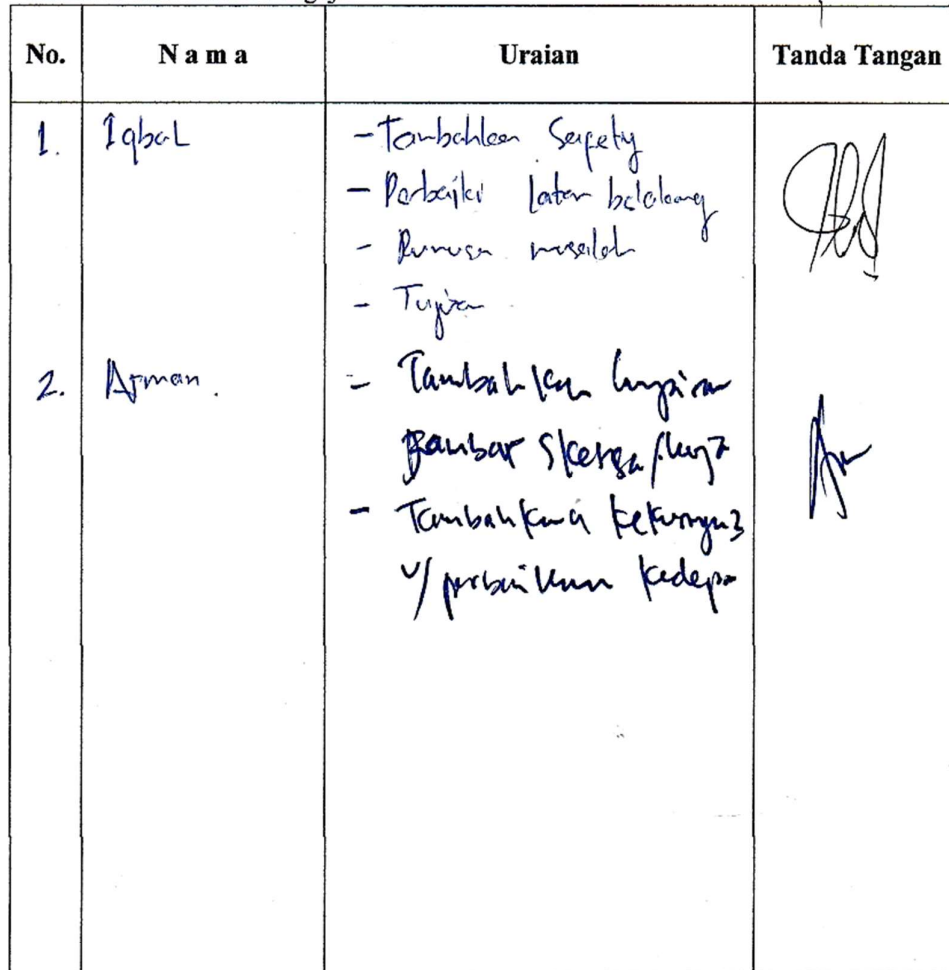 No. N a m a Uraian Tanda Tangan
1. Iqbal - Tambahkan Safety
- Perbaiki latar belakang
- Rumusan masalah
- Tujuan
2. Arman. - Tambahkan lampiran
gambar sketsa
- Tambahkan kekurangan
u/ perbaikan kedepan